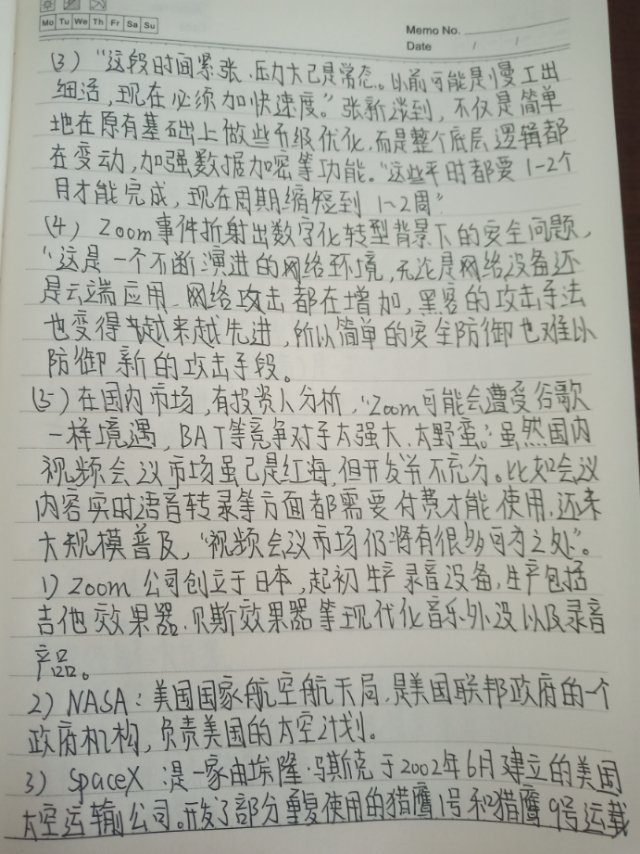 Mo Tu We Th Fr Sa Su
Memo No.
Date / /
(3)“这段时间紧张、压力大已是常态。以前可能是慢工出
细活,现在必须加快速度。”张新谈到,不仅是简单
地在原有基础上做些升级优化,而是整个底层逻辑都
在变动,加强数据加密等功能。“这些平时都要1-2个
月才能完成,现在周期缩短到1~2周”
(4)Zoom事件折射出数字化转型背景下的安全问题,
“这是一个不断演进的网络环境,无论是网络设备还
是云端应用、网络攻击都在增加,黑客的攻击手法
也变得越来越先进,所以简单的安全防御也难以
防御新的攻击手段。
(5)在国内市场,有投资人分析,“Zoom可能会遭受谷歌
一样境遇,BAT等竞争对手太强大、太野蛮。”虽然国内
视频会议市场虽已是红海,但开发并不充分。比如会议
内容实时语音转录等方面都需要付费才能使用,还未
大规模普及,“视频会议市场仍将有很多可为之处”。
1)Zoom公司创立于日本,起初生产录音设备,生产包括
吉他效果器、贝斯效果器等现代化音乐外设以及录音
产品。
2)NASA:美国国家航空航天局,是美国联邦政府的一个
政府机构,负责美国的太空计划。
3)SpaceX:是一家由埃隆·马斯克于2002年6月建立的美国
太空运输公司。开发了部分重复使用的猎鹰1号和猎鹰9号运载